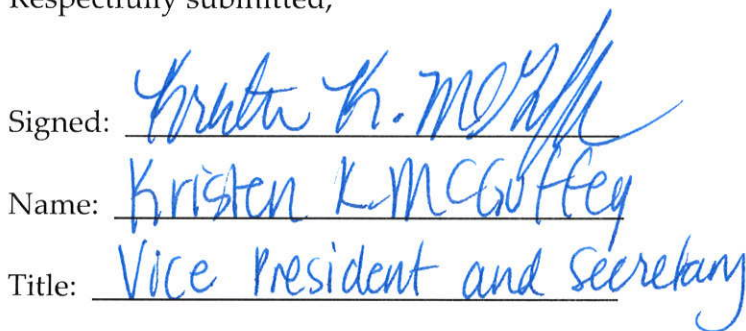 Respectfully submitted,
Signed: K. McGuffey
Name: Kristen K. McGuffey
Title: Vice President and Secretary